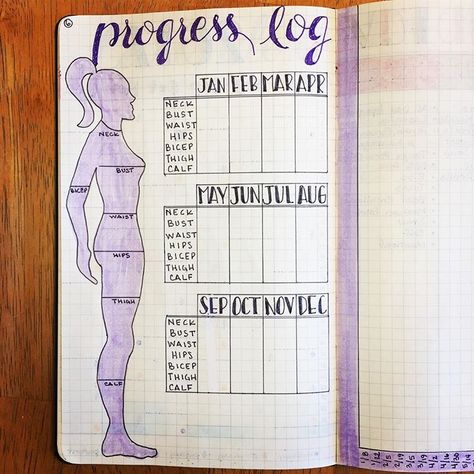 6
progress log
NECK
BUST
BICEP
WAIST
HIPS
THIGH
CALF
JAN FEB MAR APR
NECK
BUST
WAIST
HIPS
BICEP
THIGH
CALF
MAY JUN JUL AUG
NECK
BUST
WAIST
HIPS
BICEP
THIGH
CALF
SEP OCT NOV DEC
NECK
BUST
WAIST
HIPS
BICEP
THIGH
CALF
2/5
2/19
3/5
3/19
4/2
4/16
4/30